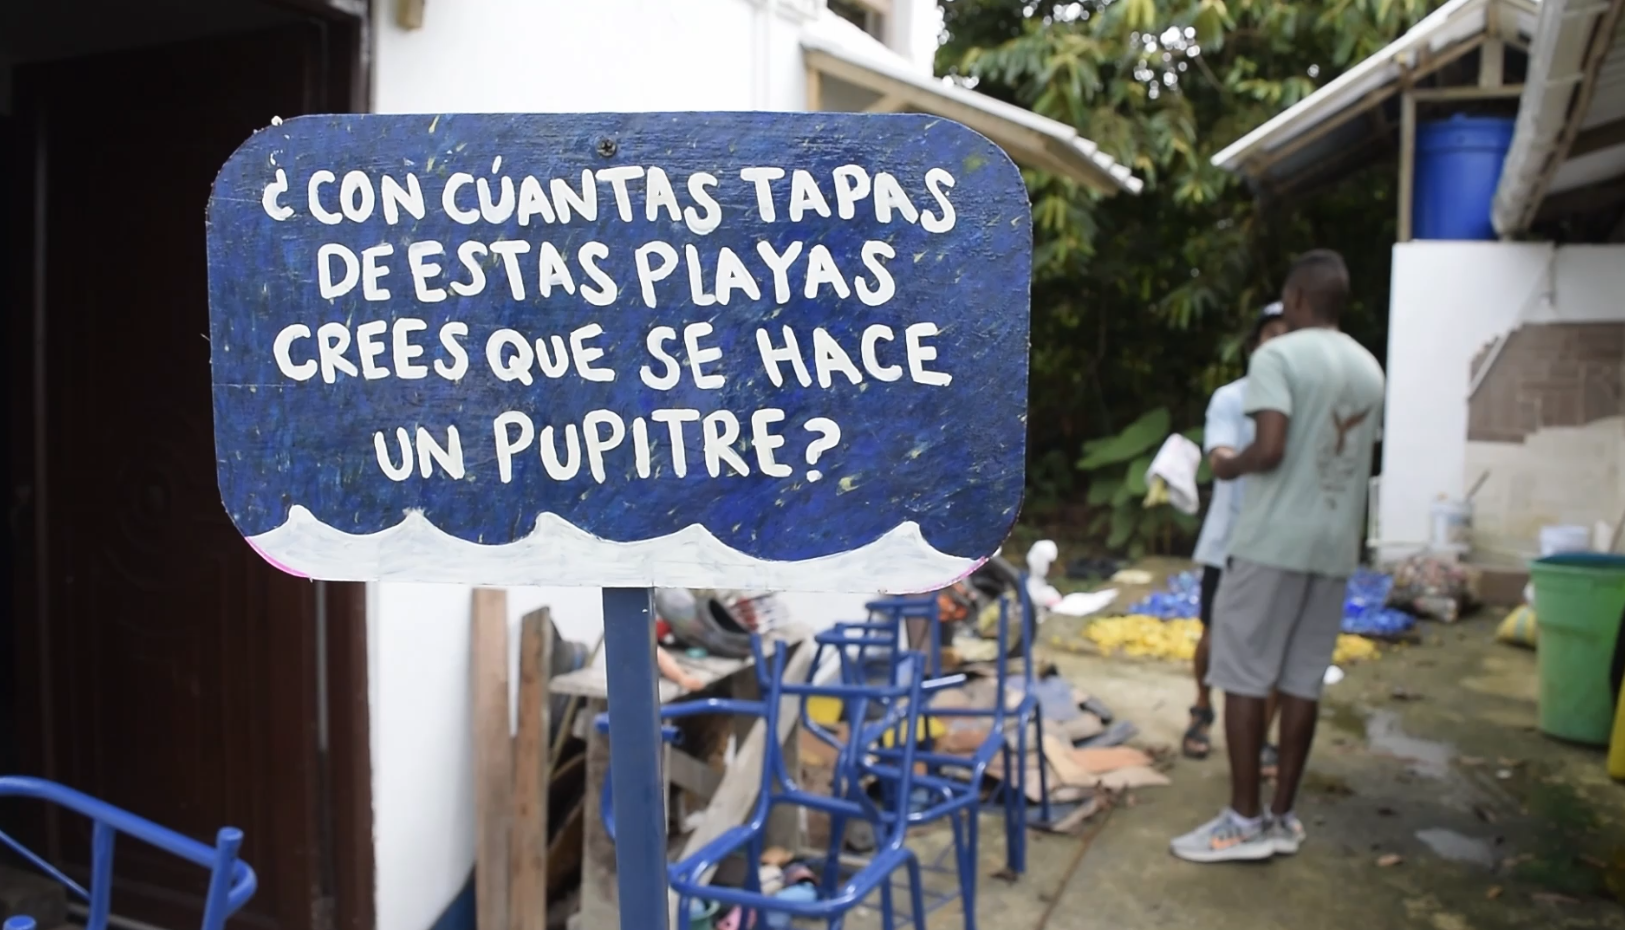 ¿CON CÚANTAS TAPAS
DE ESTAS PLAYAS
CREES QUE SE HACE
UN PUPITRE?